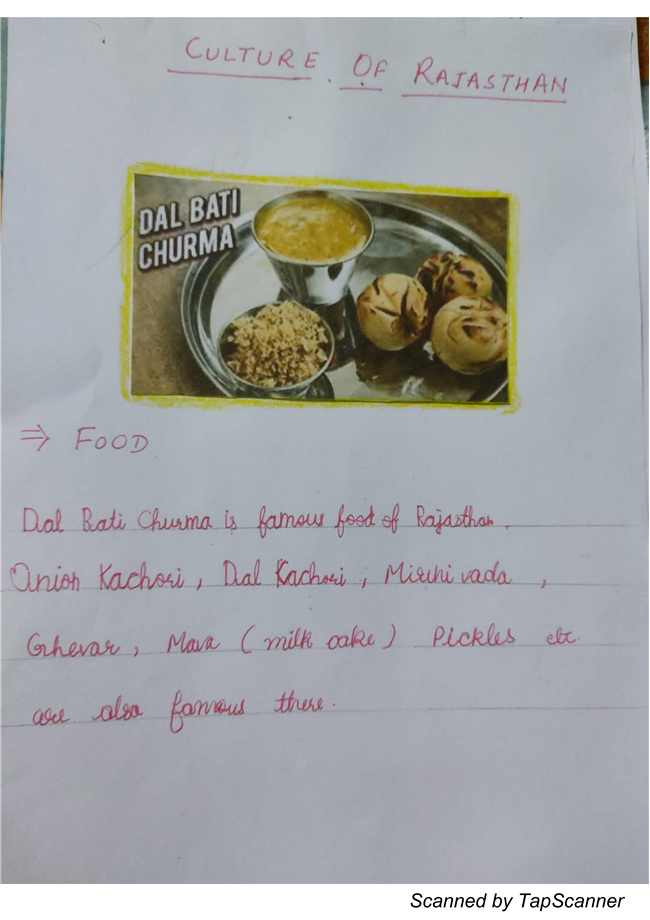 CULTURE OF RAJASTHAN
DAL BATI
CHURMA
⇒ FOOD
Dal Bati Churma is famous food of Rajasthan.
Onion Kachori, Dal Kachori, Mirchi vada,
Ghevar, Mava (milk cake) Pickles etc.
are also famous there.
Scanned by TapScanner